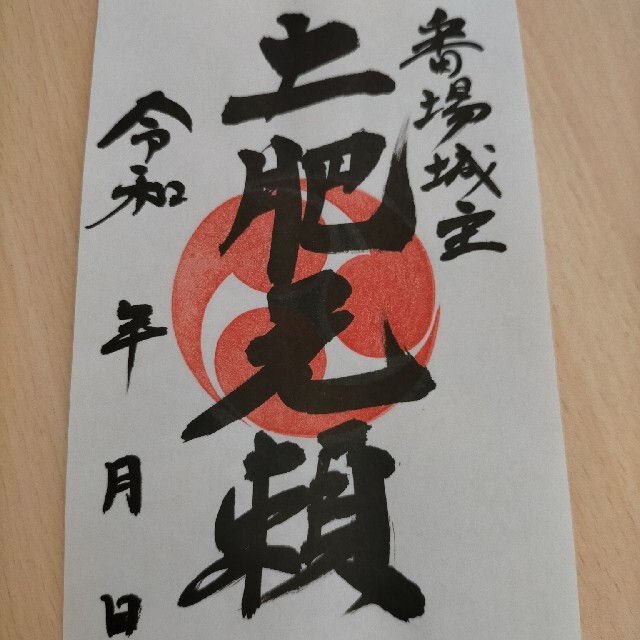 番場城主
土肥元頼
令和 年 月 日